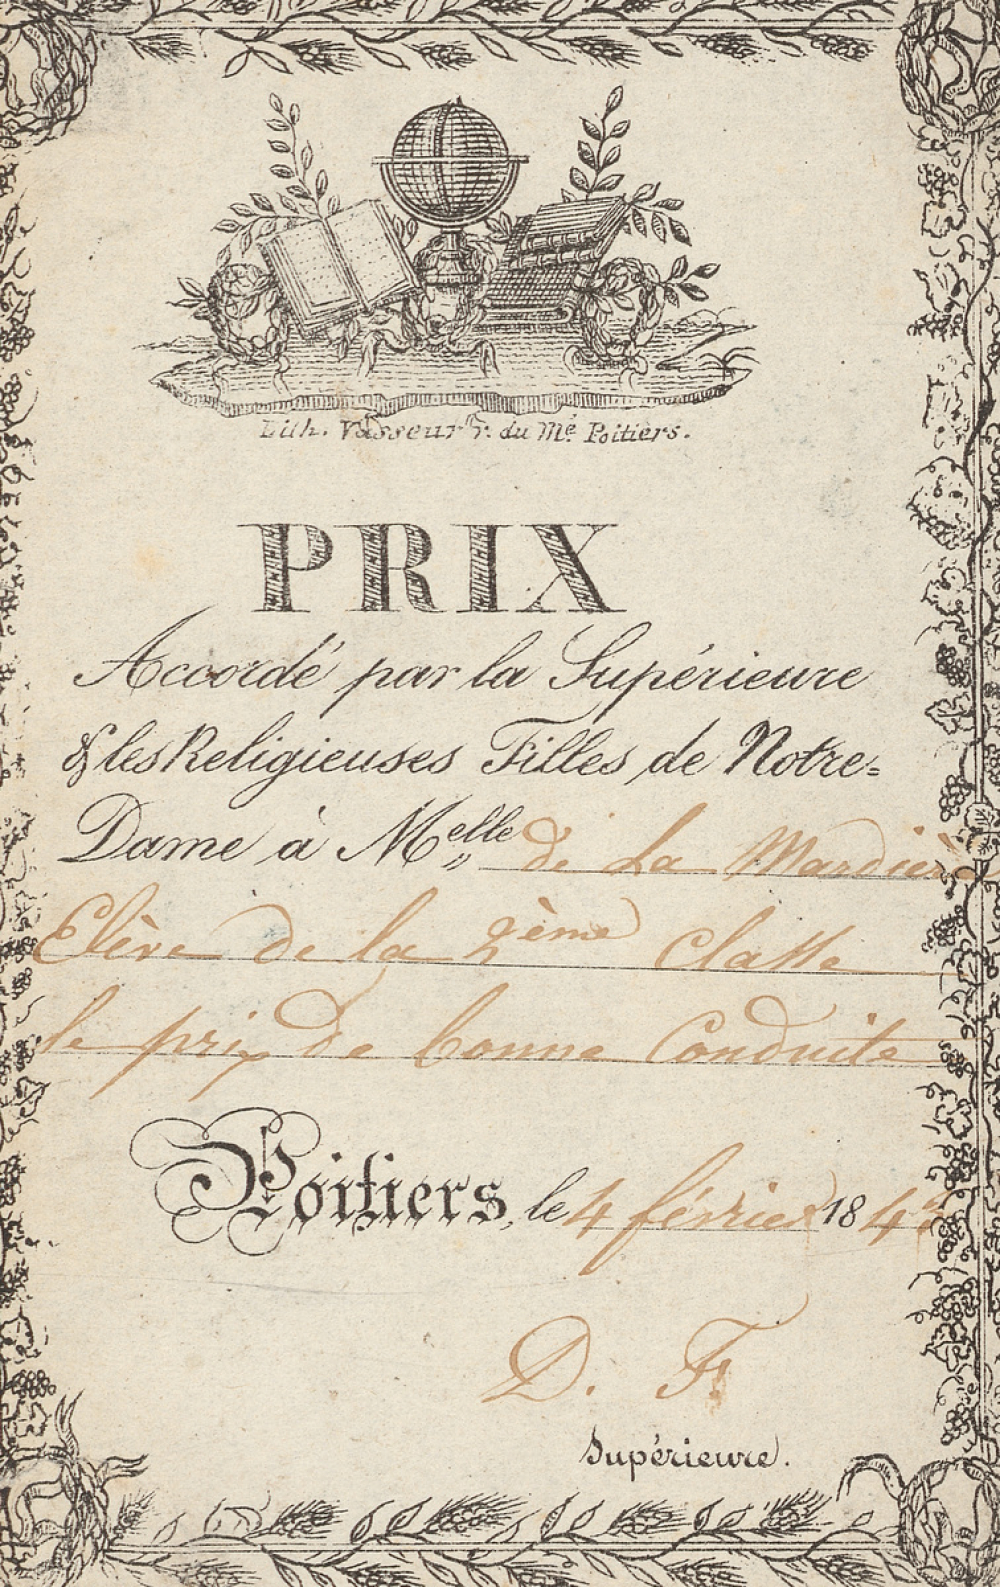 Lith. Vasseur r. du Mé Poitiers.
PRIX
Accordé par la Supérieure
& les Religieuses Filles de Notre=
Dame à Melle de La Mardière
Elève de la 2ème Classe
le prix de bonne Conduite
Poitiers, le 4 février 184
D. F.
Supérieure.